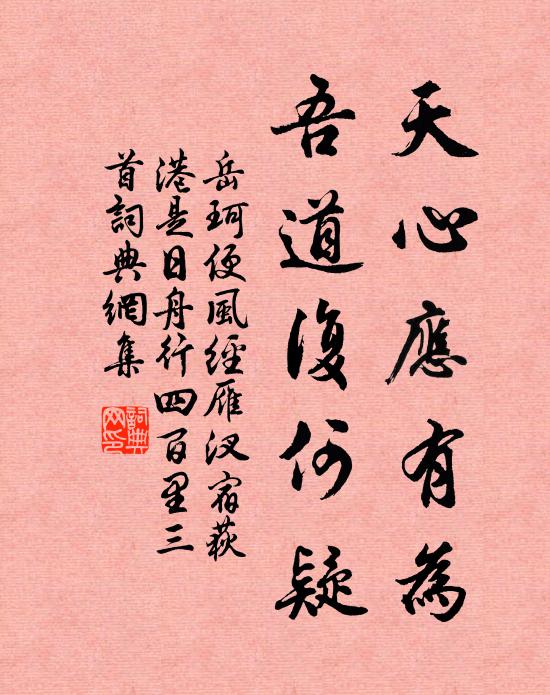 天心應有為
吾道復何疑
岳珂便風經雁汊宿荻
港是日舟行四百里三
首詞典網集
詞典
網印